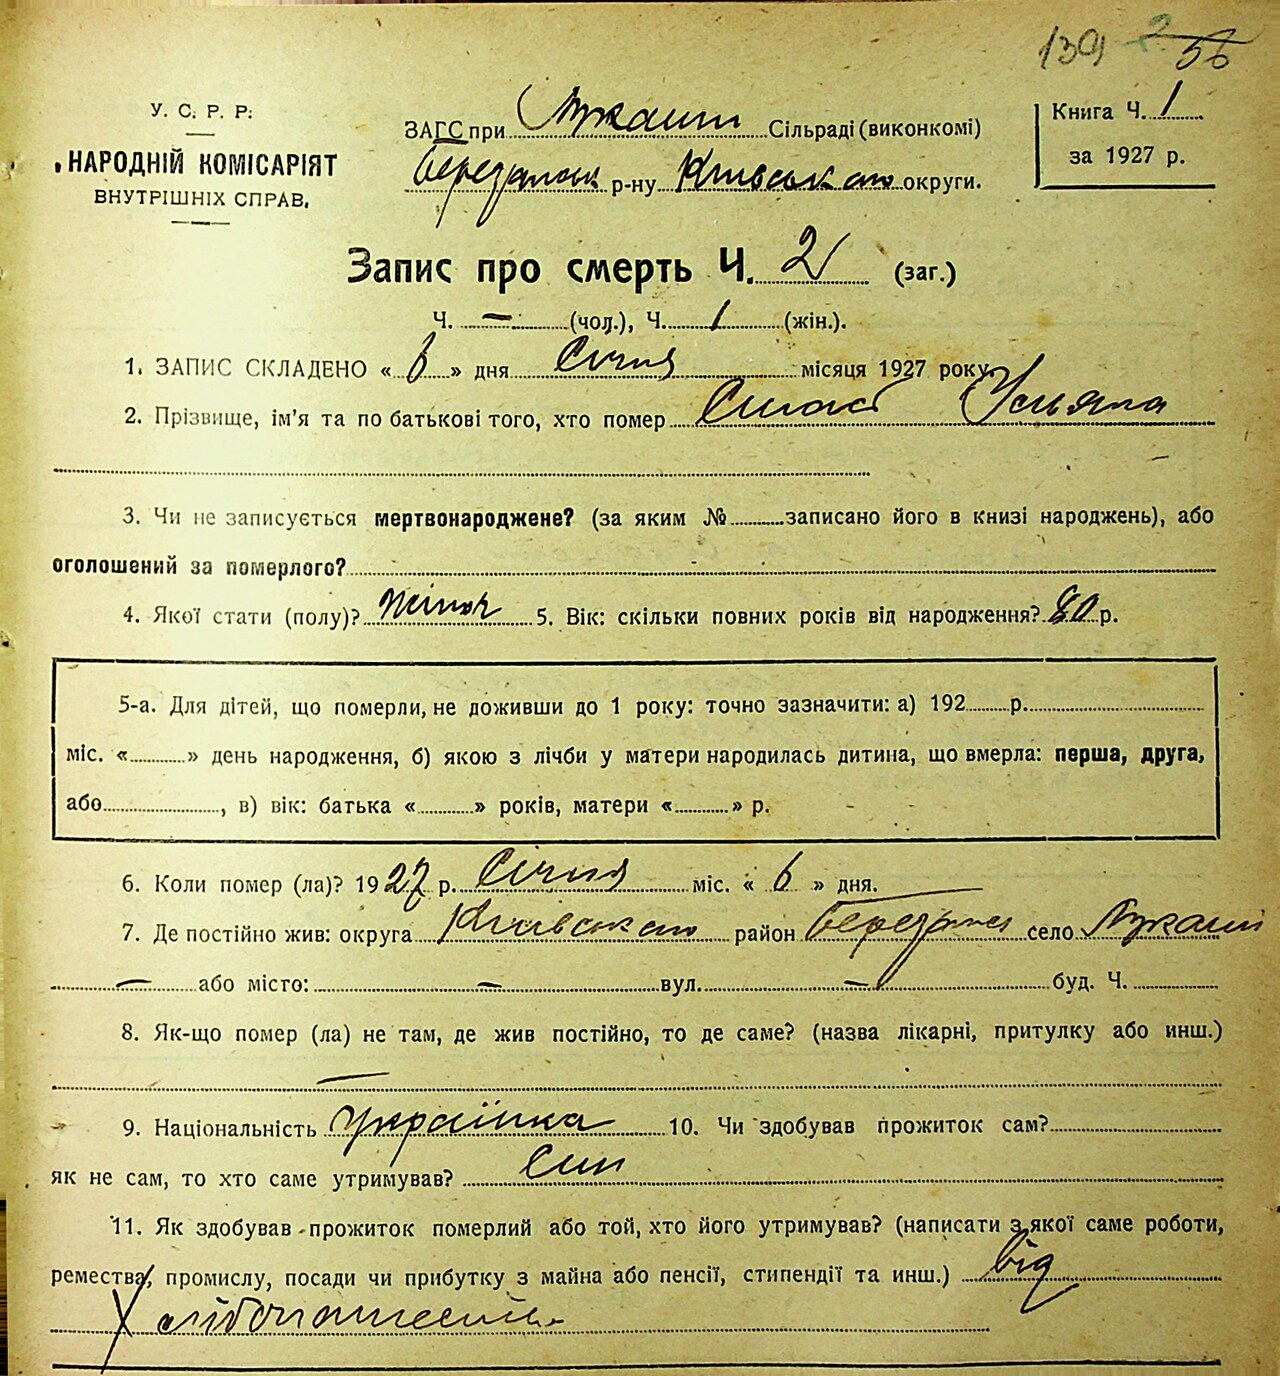 139 2 56
У. С. Р. Р.
НАРОДНІЙ КОМІСАРІЯТ
ВНУТРІШНІХ СПРАВ.
ЗАГС при Лукаши Сільраді (виконкомі)
Березанськ р-ну Київського округи.
Книга Ч. 1
за 1927 р.
Запис про смерть Ч. 2 (заг.)
Ч. — (чол.), Ч. 1 (жін.).
1. ЗАПИС СКЛАДЕНО « 6 » дня Січня місяця 1927 року
2. Прізвище, ім'я та по батькові того, хто помер Уляна
3. Чи не записується мертвонароджене? (за яким № записано його в книзі народжень), або
оголошений за померлого?
4. Якої стати (полу)? жіноч 5. Вік: скільки повних років від народження? 80 р.
5-а. Для дітей, що померли, не доживши до 1 року: точно зазначити: а) 192 р.
міс. « » день народження, б) якою з лічби у матери народилась дитина, що вмерла: перша, друга,
або , в) вік: батька « » років, матери « » р.
6. Коли помер (ла)? 1927 р. Січня міс. « 6 » дня.
7. Де постійно жив: округа Київського район Березанськ село Лукаши
— або місто: — вул. — буд. Ч.
8. Як-що помер (ла) не там, де жив постійно, то де саме? (назва лікарні, притулку або инш.)
—
9. Національність Українка 10. Чи здобував прожиток сам?
як не сам, то хто саме утримував? Син
11. Як здобував прожиток померлий або той, хто його утримував? (написати з якої саме роботи,
ремества, промислу, посади чи прибутку з майна або пенсії, стипендії та инш.) від
хлібопашества